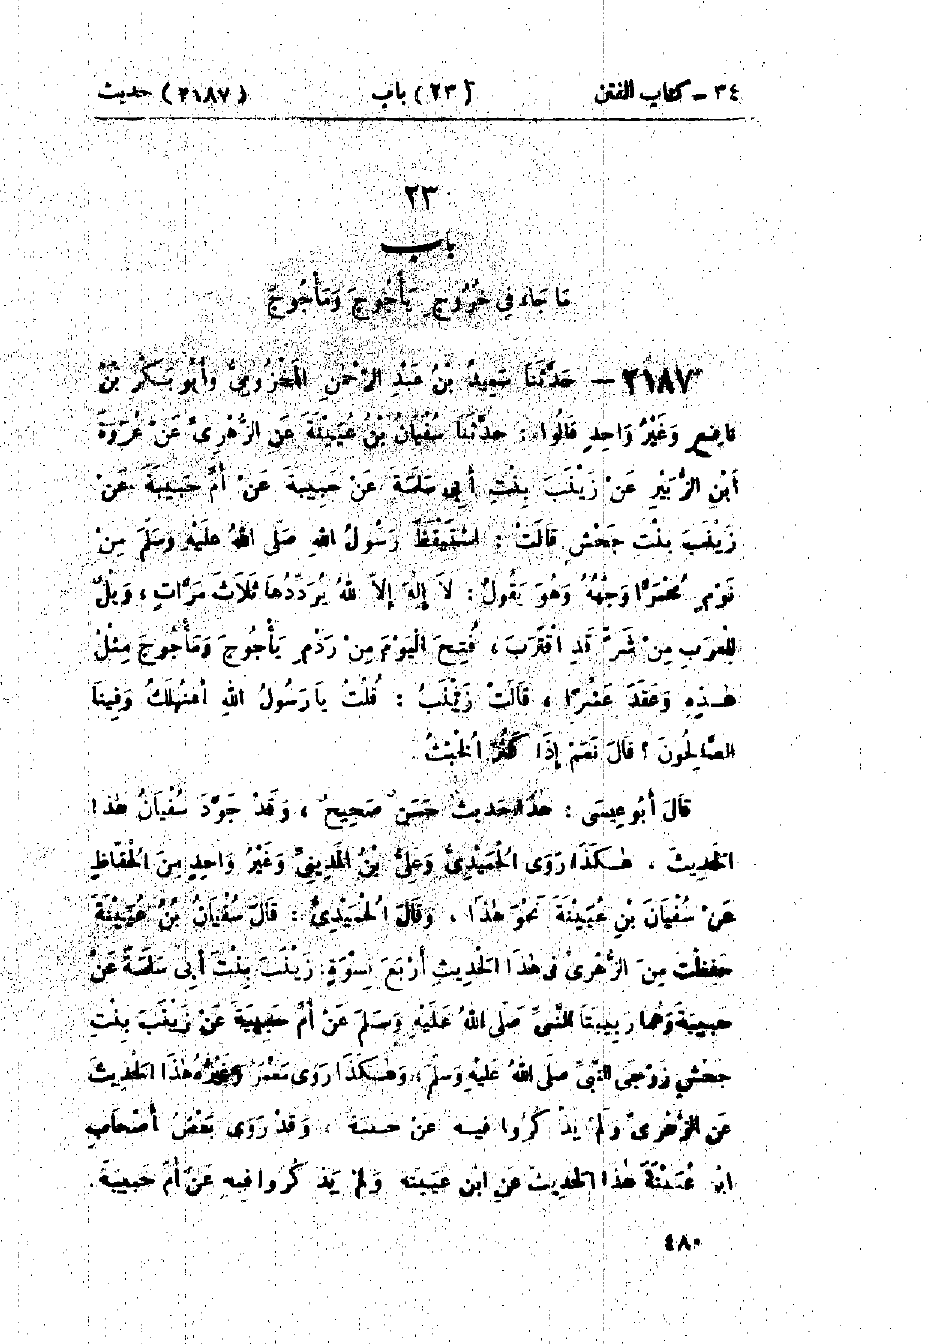 ٣٤ – كتاب الفتن (٢٣) باب (٢١٨٧) حديث
٢٣
باب
مَا جَاءَ فِي خُرُوجِ يَأْجُوجَ وَمَأْجُوجَ
٢١٨٧ – حَدَّثَنَا سَعِيدُ بْنُ عَبْدِ الرَّحْمٰنِ الْمَخْزُومِيُّ وَأَبُو بَكْرِ بْنُ
نَافِعٍ وَغَيْرُ وَاحِدٍ قَالُوا : حَدَّثَنَا سُفْيَانُ بْنُ عُيَيْنَةَ عَنِ الزُّهْرِيِّ عَنْ عُرْوَةَ
ابْنِ الزُّبَيْرِ عَنْ زَيْنَبَ بِنْتِ أَبِي سَلَمَةَ عَنْ حَبِيبَةَ عَنْ أُمِّ حَبِيبَةَ عَنْ
زَيْنَبَ بِنْتِ جَحْشٍ قَالَتْ : اسْتَيْقَظَ رَسُولُ اللهِ صَلَّى اللهُ عَلَيْهِ وَسَلَّمَ مِنْ
نَوْمٍ مُحْمَرًّا وَجْهُهُ وَهُوَ يَقُولُ : لَا إِلٰهَ إِلاَّ اللهُ يُرَدِّدُهَا ثَلَاثَ مَرَّاتٍ ، وَيْلٌ
لِلْعَرَبِ مِنْ شَرٍّ قَدِ اقْتَرَبَ ، فُتِحَ الْيَوْمَ مِنْ رَدْمِ يَأْجُوجَ وَمَأْجُوجَ مِثْلُ
هٰذِهِ وَعَقَدَ عَشْرًا ، قَالَتْ زَيْنَبُ : قُلْتُ يَا رَسُولَ اللهِ أَفَنُهْلَكُ وَفِينَا
الصَّالِحُونَ ؟ قَالَ نَعَمْ إِذَا كَثُرَ الْخَبَثُ
قَالَ أَبُو عِيسَى : هٰذَا حَدِيثٌ حَسَنٌ صَحِيحٌ ، وَقَدْ جَوَّدَ سُفْيَانُ هٰذَا
الْحَدِيثَ . هٰكَذَا رَوَى الْحُمَيْدِيُّ وَعَلِيُّ بْنُ الْمَدِينِيِّ وَغَيْرُ وَاحِدٍ مِنَ الْحُفَّاظِ
عَنْ سُفْيَانَ بْنِ عُيَيْنَةَ نَحْوَ هٰذَا . وَقَالَ الْحُمَيْدِيُّ : قَالَ سُفْيَانُ بْنُ عُيَيْنَةَ
حَفِظْتُ مِنَ الزُّهْرِيِّ فِي هٰذَا الْحَدِيثِ أَرْبَعَ نِسْوَةٍ: زَيْنَبَ بِنْتَ أَبِي سَلَمَةَ عَنْ
حَبِيبَةَ وَهُمَا رَبِيبَتَا النَّبِيِّ صَلَّى اللهُ عَلَيْهِ وَسَلَّمَ عَنْ أُمِّ حَبِيبَةَ عَنْ زَيْنَبَ بِنْتِ
جَحْشٍ زَوْجَيِ النَّبِيِّ صَلَّى اللهُ عَلَيْهِ وَسَلَّمَ ، وَهٰكَذَا رَوَى مَعْمَرٌ وَغَيْرُهُ هٰذَا الْحَدِيثَ
عَنِ الزُّهْرِيِّ وَلَمْ يَذْكُرُوا فِيهِ عَنْ حَبِيبَةَ ، وَقَدْ رَوَى بَعْضُ أَصْحَابِ
ابْنِ عُيَيْنَةَ هٰذَا الْحَدِيثَ عَنِ ابْنِ عُيَيْنَةَ وَلَمْ يَذْكُرُوا فِيهِ عَنْ أُمِّ حَبِيبَةَ .
٤٨٠